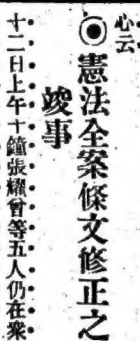 心云
◉憲法全案條文修正之
竣事
十二日上午十鐘張耀曾等五人仍在衆